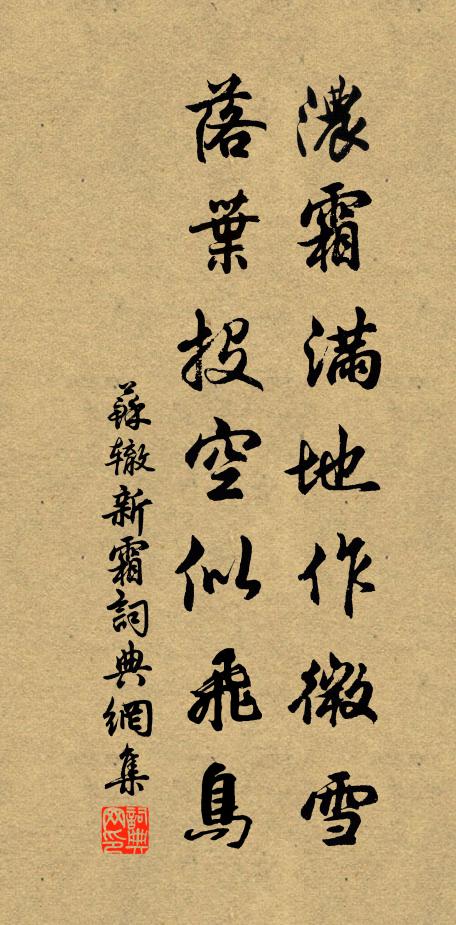 濃霜滿地作微雪
落葉投空似飛鳥
蘇轍新霜詞典網集
詞典網印